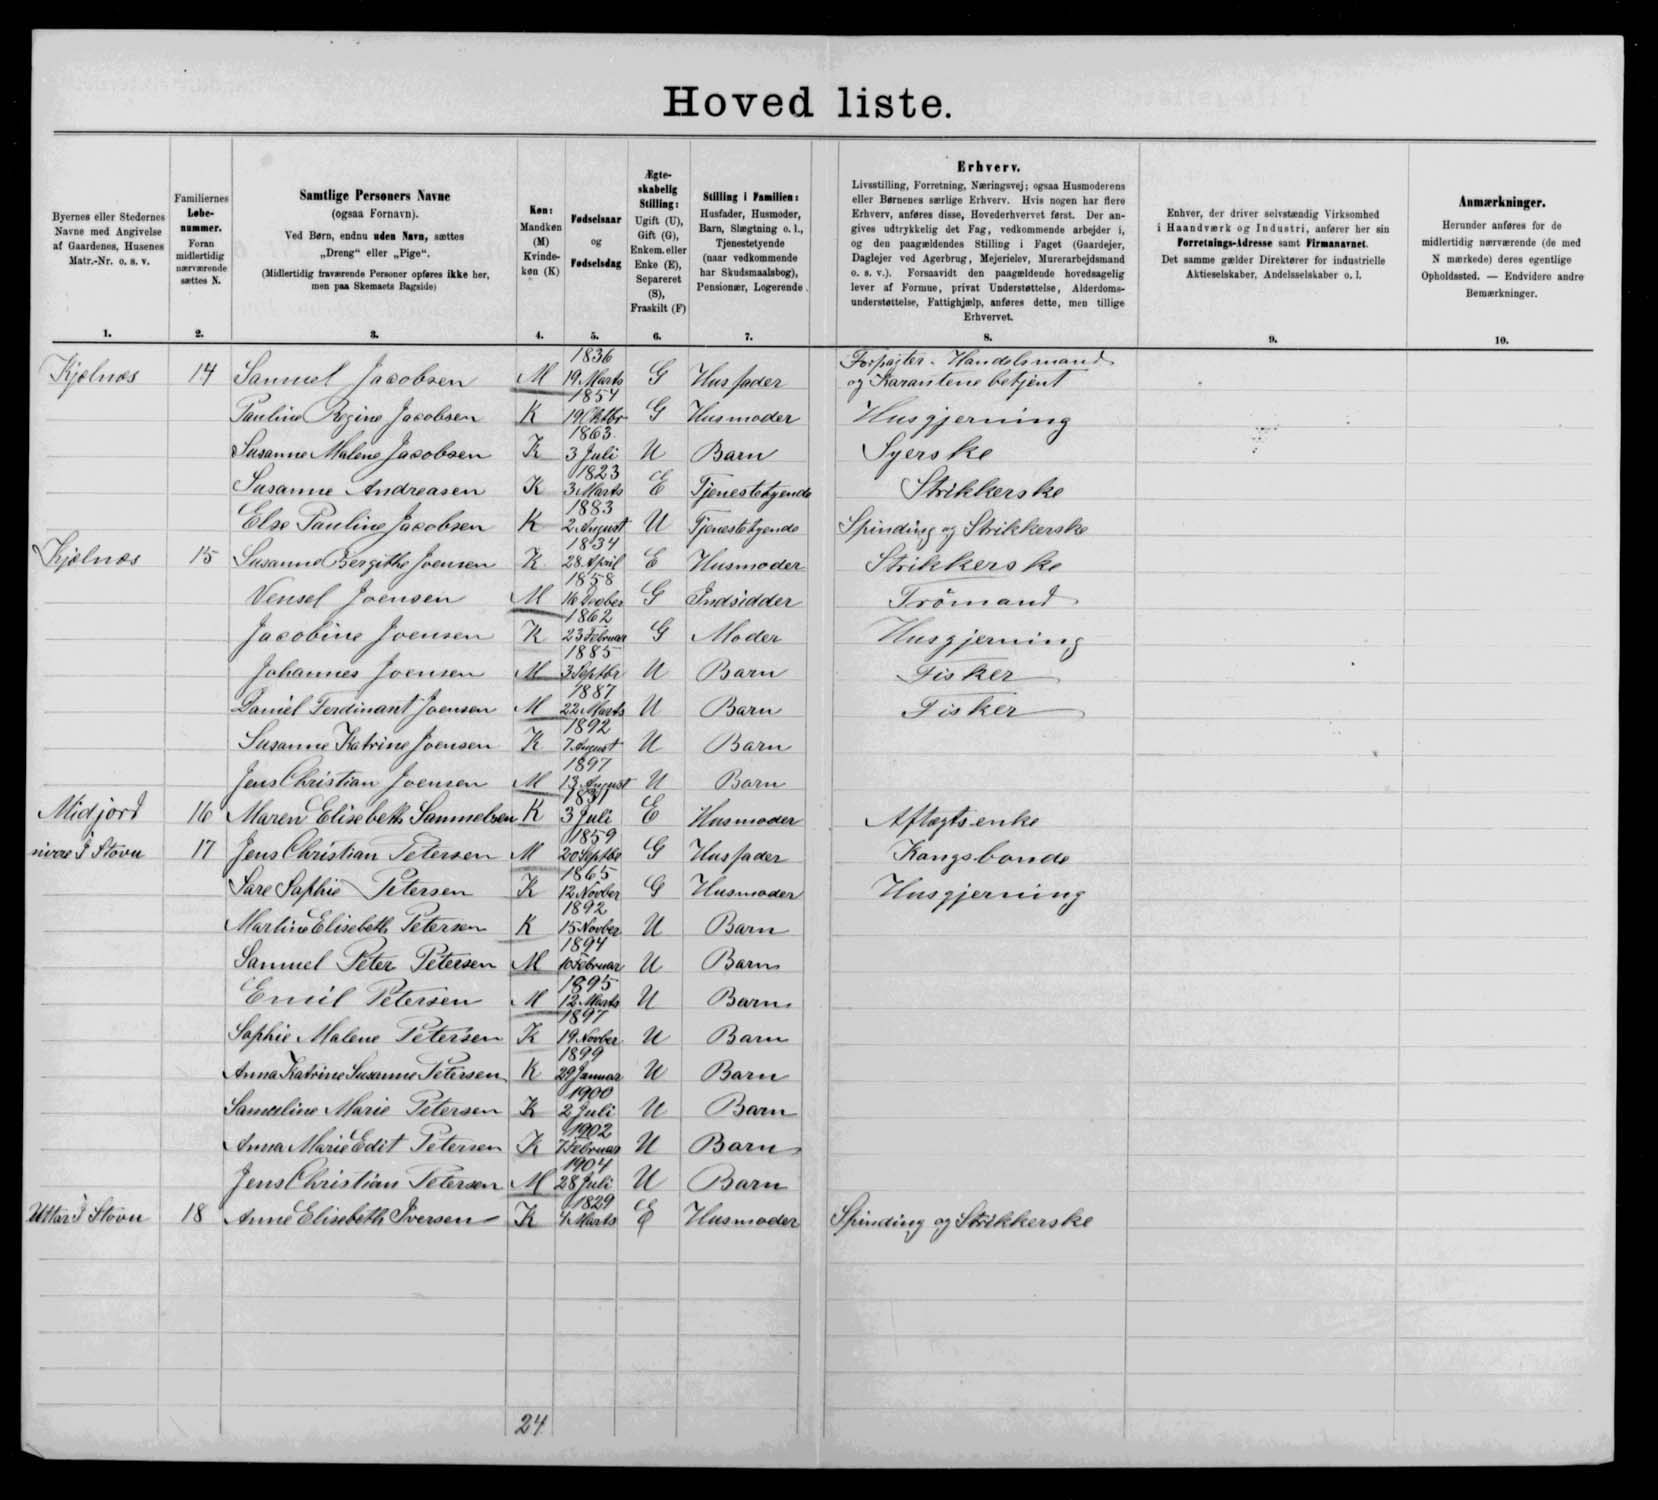 Hoved liste.
Byernes eller Stedernes
Navne med Angivelse
af Gaardenes, Husenes
Matr.-Nr. o. s. v.
1.
Familiernes
Løbe-
nummer.
Foran
midlertidig
nærværende
sættes N.
2.
Samtlige Personers Navne
(ogsaa Fornavn).
Ved Børn, endnu uden Navn, sættes
„Dreng“ eller „Pige“.
(Midlertidig fraværende Personer opføres ikke her,
men paa Skemaets Bagside)
3.
Køn:
Mandkøn
(M)
Kvinde-
køn (K)
4.
Fødselsaar
og
Fødselsdag
5.
Ægte-
skabelig
Stilling:
Ugift (U),
Gift (G),
Enkem. eller
Enke (E),
Separeret
(S),
Fraskilt (F)
6.
Stilling i Familien:
Husfader, Husmoder,
Barn, Slægtning o. l.,
Tjenestetyende
(naar vedkommende
har Skudsmaalsbog),
Pensionær, Logerende.
7.
Erhverv.
Livsstilling, Forretning, Næringsvej; ogsaa Husmoderens
eller Børnenes særlige Erhverv. Hvis nogen har flere
Erhverv, anføres disse, Hovederhvervet først. Der an-
gives udtrykkelig det Fag, vedkommende arbejder i,
og den paagældendes Stilling i Faget (Gaardejer,
Daglejer ved Agerbrug, Mejerielev, Murerarbejdsmand
o. s. v.). Forsaavidt den paagældende hovedsagelig
lever af Formue, privat Understøttelse, Alderdoms-
understøttelse, Fattighjælp, anføres dette, men tillige
Erhvervet.
8.
Enhver, der driver selvstændig Virksomhed
i Haandværk og Industri, anfører her sin
Forretnings-Adresse samt Firmanavnet.
Det samme gælder Direktører for industrielle
Aktieselskaber, Andelsselskaber o. l.
9.
Anmærkninger.
Herunder anføres for de
midlertidig nærværende (de med
N mærkede) deres egentlige
Opholdssted. — Endvidere andre
Bemærkninger.
10.
1836 Forpagter. Handelsmand
Kjælnæs 14 Samuel Jacobsen M 19 Marts G Husfader og Karantenebetjent
1854
Pauline Regine Jacobsen K 19 Oktbr G Husmoder Husgjerning
1863
Susanne Malene Jacobsen K 3 Juli U Barn Syerske
1823
Susanne Andreasen K 3 Marts E Tjenestetyende Strikkerske
1883
Else Pauline Jacobsen K 2 August U Tjenestetyende Spinding og Strikkerske
1834
Kjælnæs 15 Susanne Bergithe Joensen K 28. April E Husmoder Strikkerske
1858
Vensel Joensen M 16 Decber G Indsidder Trömand
1862
Jacobine Joensen K 23 Februar G Moder Husgjerning
1885
Johannes Joensen M 3 Septbr U Barn Fisker
1887
Daniel Ferdinant Joensen M 22 Marts U Barn Fisker
1892
Susanne Katrine Joensen K 7 August U Barn
1897
Jens Christian Joensen M 13 August U Barn
1831
Midjord 16 Maren Elisebeth Sammelsen K 3 Juli E Husmoder Aftægtsenke
1859
I Stovu 17 Jens Christian Petersen M 20 Septbr G Husfader Kongsbonde
1865
Sare Sophie Petersen K 12 Novber G Husmoder Husgjerning
1892
Martine Elisebeth Petersen K 15 Novber U Barn
1894
Samuel Peter Petersen M 10 Februar U Barn
1895
Emil Petersen M 12 Marts U Barn
1897
Sophie Malene Petersen K 19 Novber U Barn
1899
Anna Katrine Susanne Petersen K 29 Januar U Barn
1900
Samueline Marie Petersen K 2 Juli U Barn
1902
Anna Marie Edit Petersen K 7 Februar U Barn
1904
Jens Christian Petersen M 28 Juli U Barn
1829
Uttar I Stovu 18 Anne Elisebeth Iversen K 4 Marts E Husmoder Spinding og Strikkerske
24